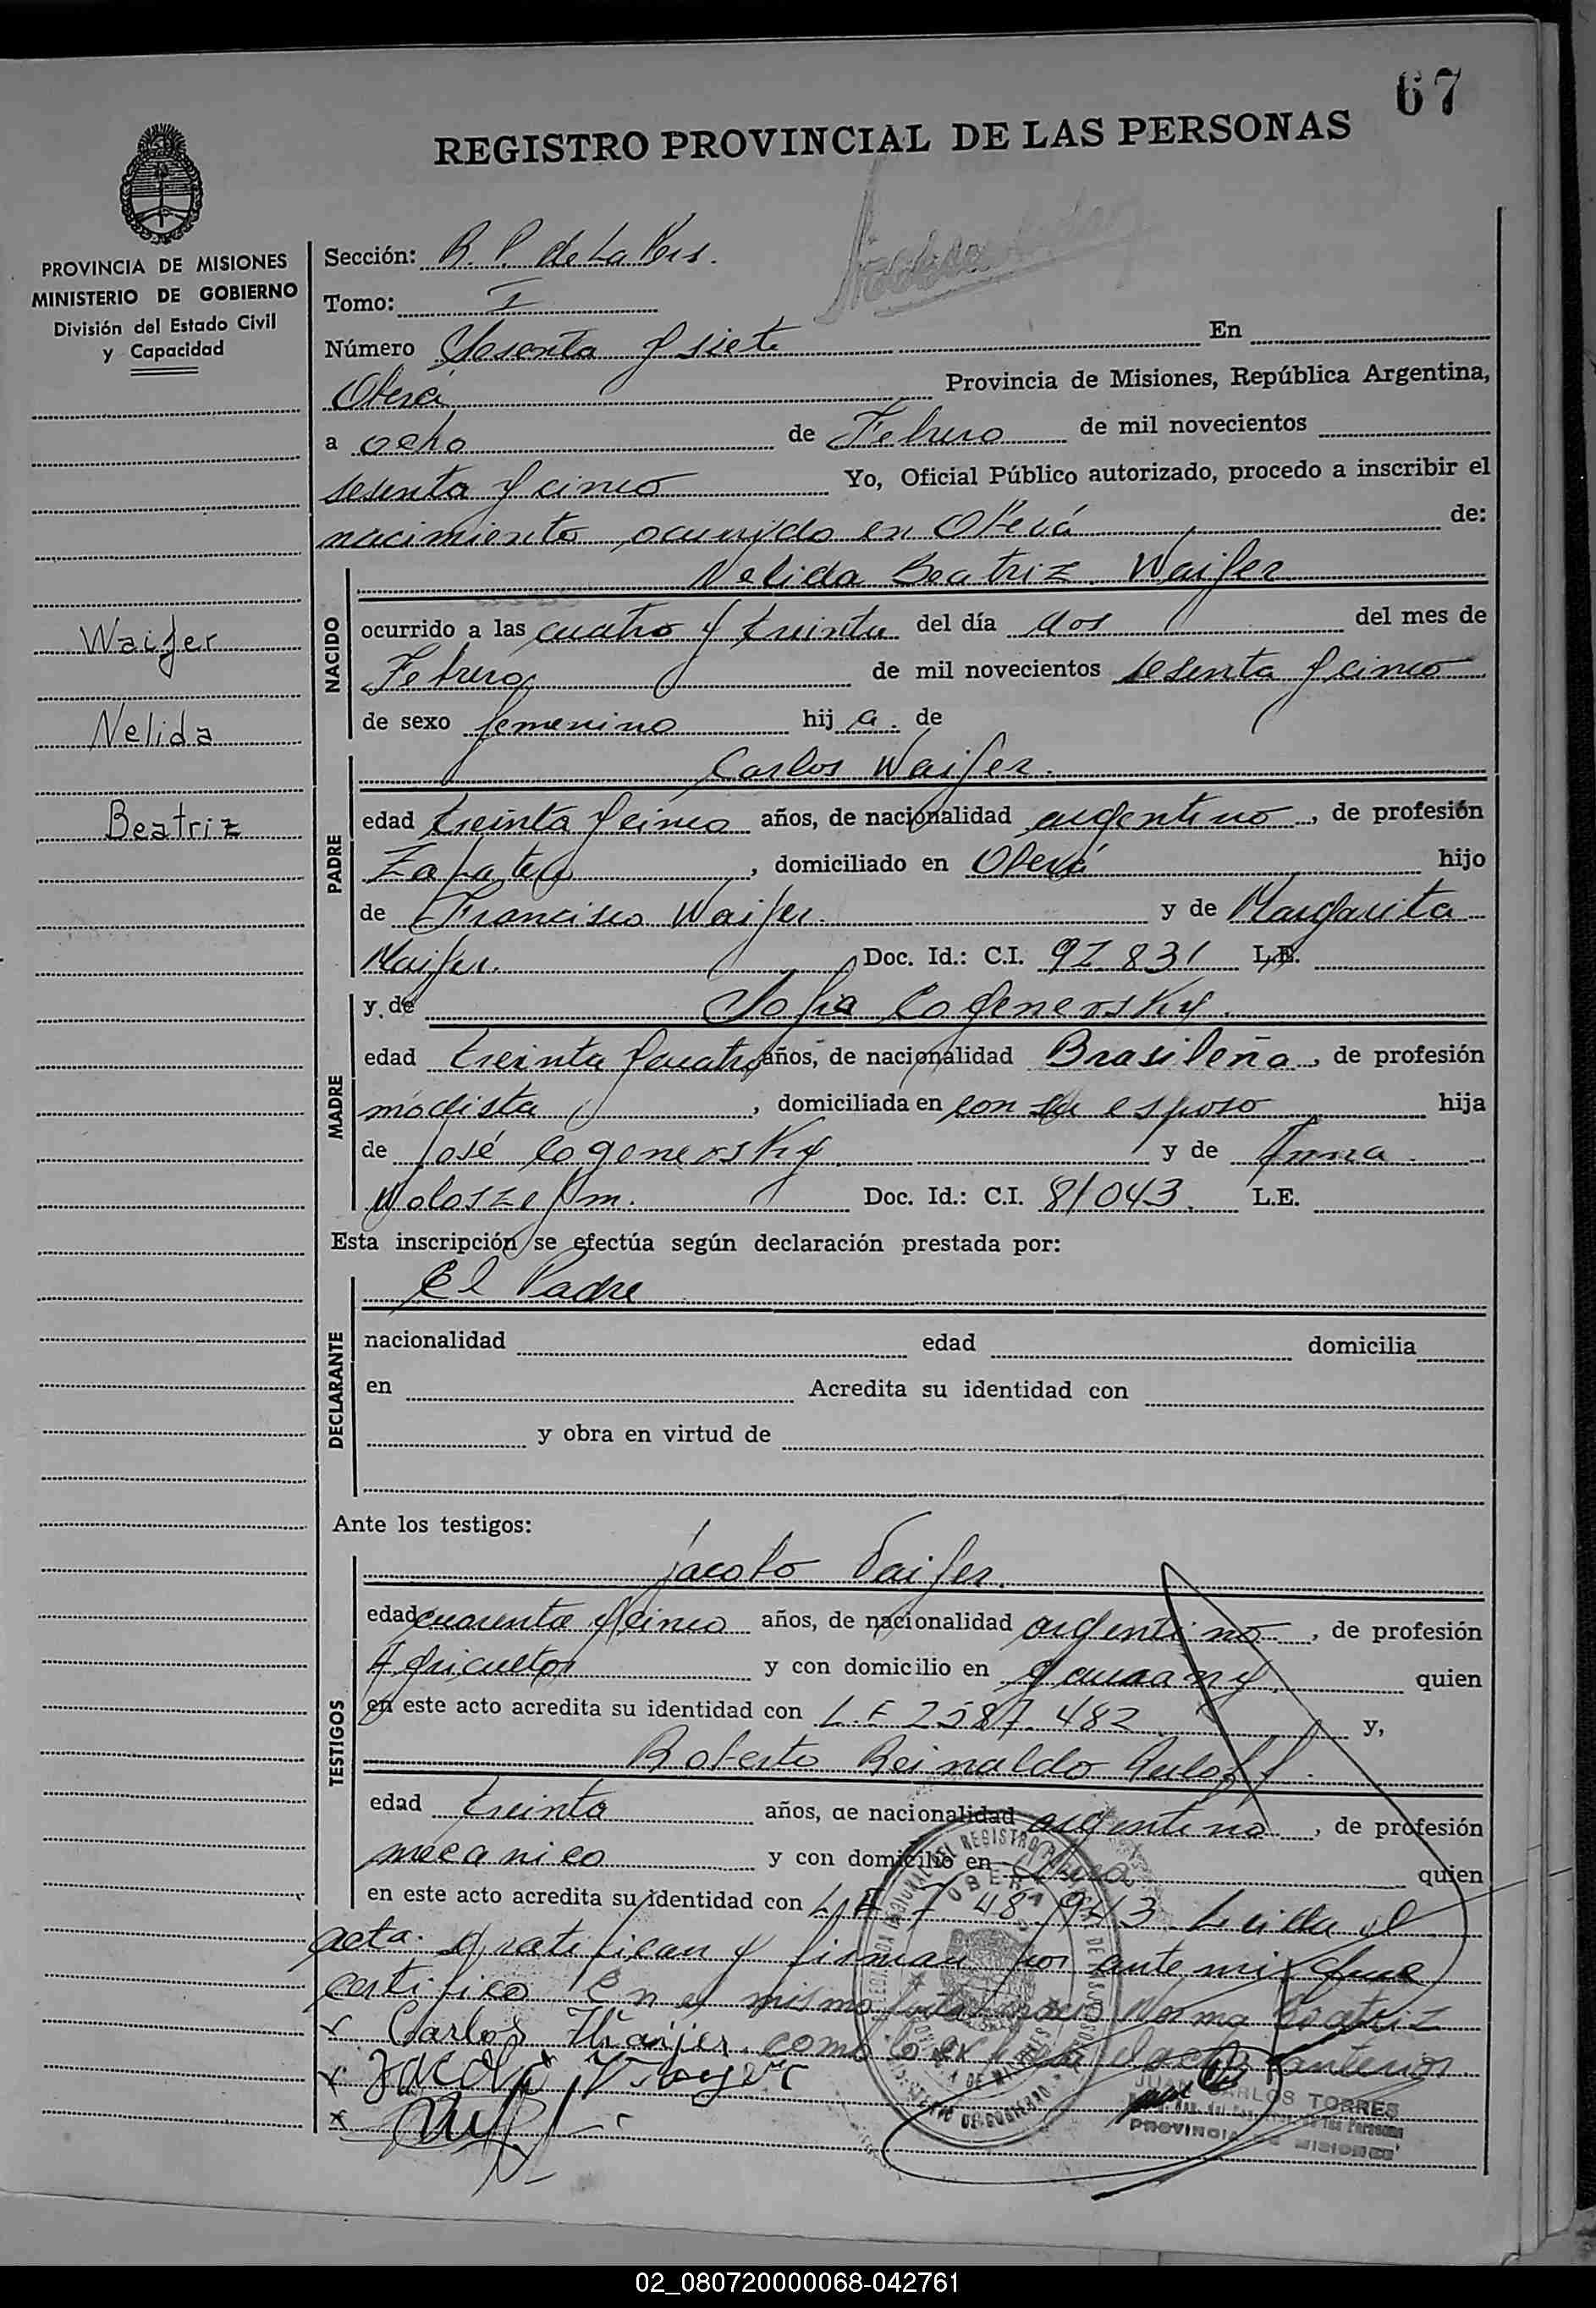 67
REGISTRO PROVINCIAL DE LAS PERSONAS
PROVINCIA DE MISIONES
MINISTERIO DE GOBIERNO
División del Estado Civil
y Capacidad
Waifer
Nelida
Beatriz
Sección: R. P. de La Pers.
Tomo: I
Número Sesenta y siete En
Oberá Provincia de Misiones, República Argentina,
a ocho de Febrero de mil novecientos
sesenta y cinco Yo, Oficial Público autorizado, procedo a inscribir el
nacimiento ocurrido en Oberá de:
NACIDO
Nelida Beatriz Waifer
ocurrido a las cuatro y treinta del día dos del mes de
Febrero de mil novecientos sesenta y cinco
de sexo femenino hij a. de
PADRE
Carlos Waifer.
edad treinta y cinco años, de nacionalidad argentino, de profesión
Zapatero, domiciliado en Oberá hijo
de Francisco Waifer. y de Margarita
Maifer. Doc. Id.: C.I. 92.831 L.E.
MADRE
y de Sofia Cogenersky.
edad treinta y cuatro años, de nacionalidad Brasileña, de profesión
modista, domiciliada en con su esposo hija
de José Cogenersky y de Anna
Doc. Id.: C.I. 81043. L.E.
Esta inscripción se efectúa según declaración prestada por:
DECLARANTE
El Padre
nacionalidad edad domicilia
en Acredita su identidad con
y obra en virtud de
Ante los testigos:
TESTIGOS
Jacobo Vaifer.
edad cuarenta y cinco años, de nacionalidad argentino, de profesión
Agricultor y con domicilio en guarany quien
en este acto acredita su identidad con L.E 2587.482 y,
Roberto Reinaldo
edad treinta años, de nacionalidad argentino, de profesión
mecanico y con domicilio en Oberá quien
en este acto acredita su identidad con L.E 7 48 943 Leida el
acta. ratifican y firman por ante mi que
certifico En el mismo Norma Beatriz
Carlos Waifer como lo el acta anterior.
Jacobo
JUAN CARLOS TORRES
PROVINCIA DE MISIONES
02_080720000068-042761